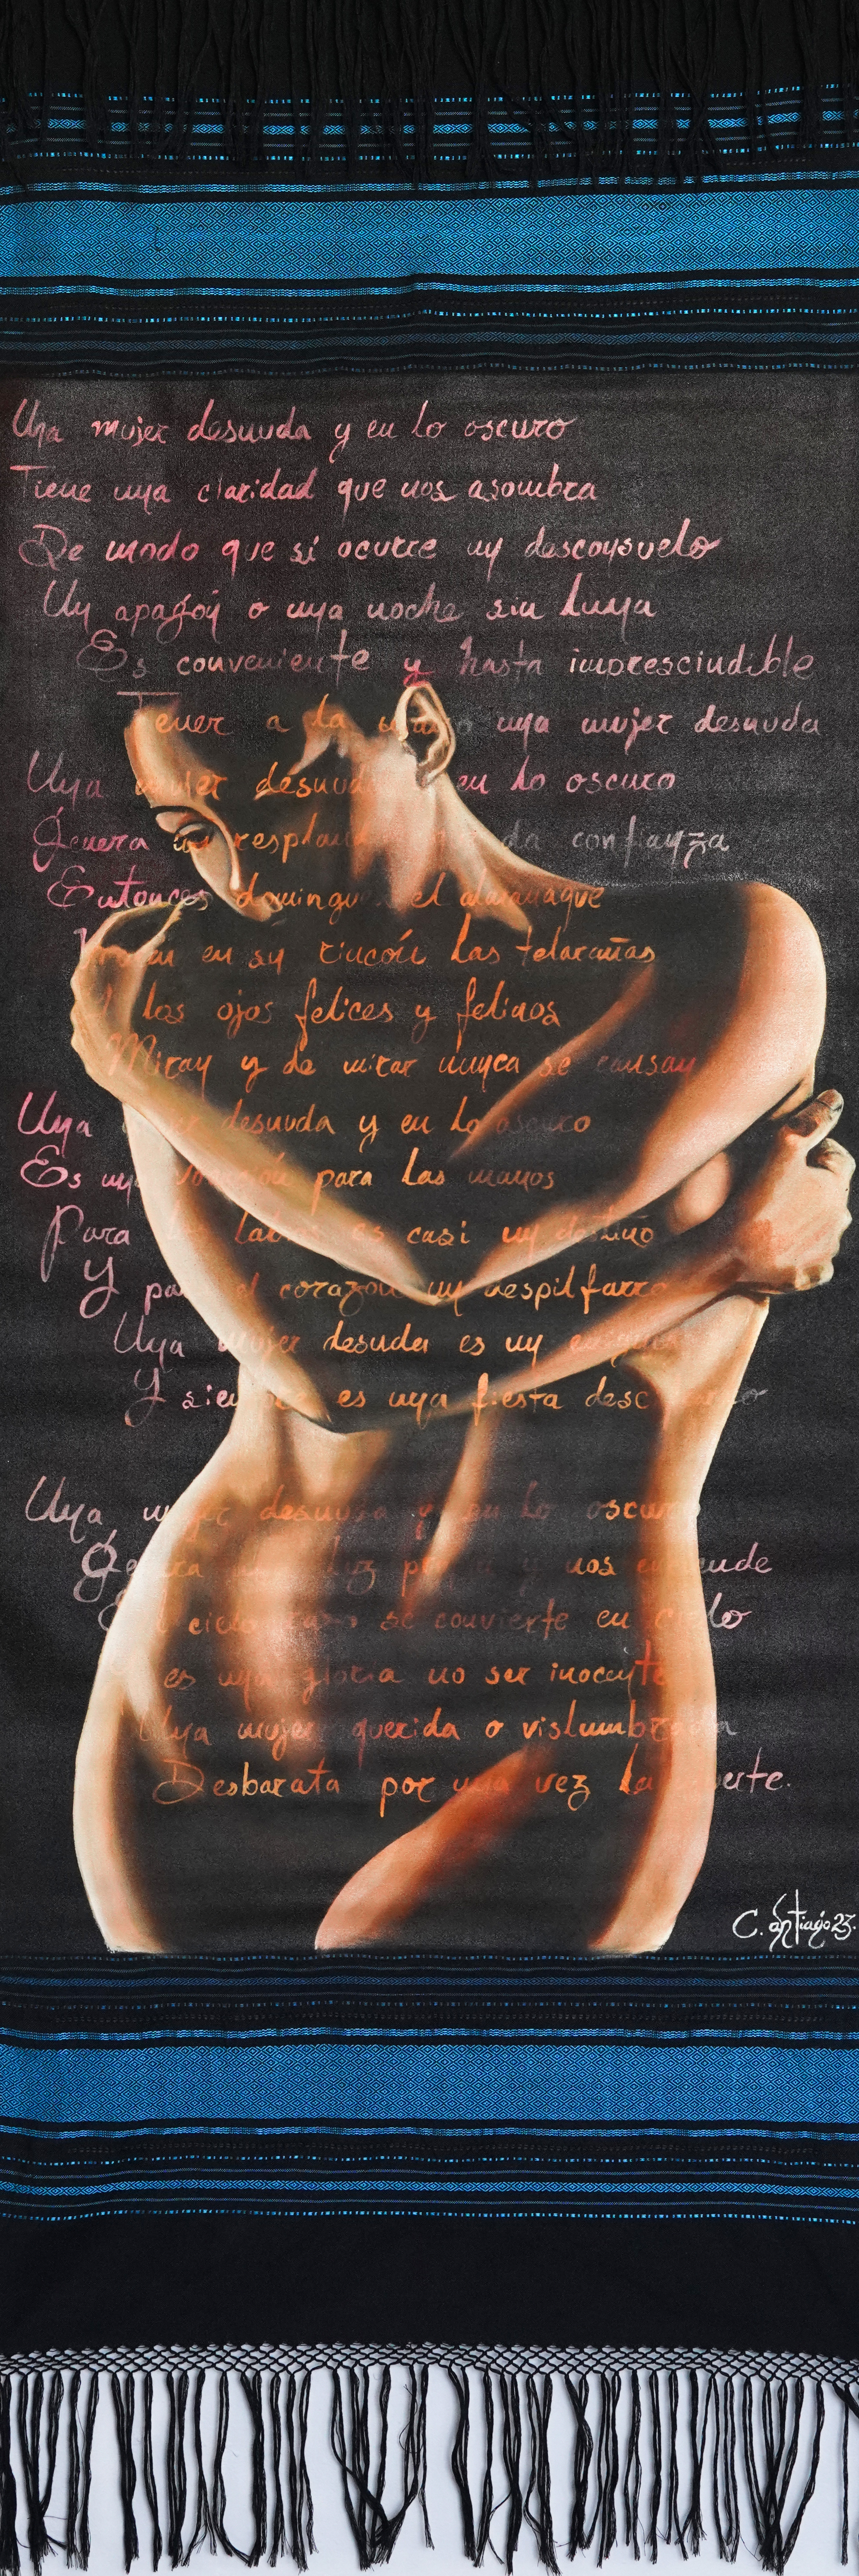 Una mujer desnuda y en lo oscuro
Tiene una claridad que nos asombra
De modo que si ocurre un desconsuelo
Un apagón o una noche sin luna
Es conveniente y hasta imprescindible
Tener a la mano una mujer desnuda
Una mujer desnuda en lo oscuro
Genera un resplandor da confianza
Entonces domingue el almanaque
en su rincón las telarañas
los ojos felices y felinos
Miran y de mirar nunca se cansan
Una mujer desnuda y en lo oscuro
Es una vocación para las manos
Para los labios es casi un destino
Y para el corazón un despilfarro
Una mujer desuda es un enigma
Y siempre es una fiesta descifrarlo
Una mujer desnuda y en lo oscuro
Genera una luz propia y nos enciende
El cielo raso se convierte en cielo
es una gloria no ser inocente
Una mujer querida o vislumbrada
Desbarata por una vez la muerte.
C. Santiago 23.